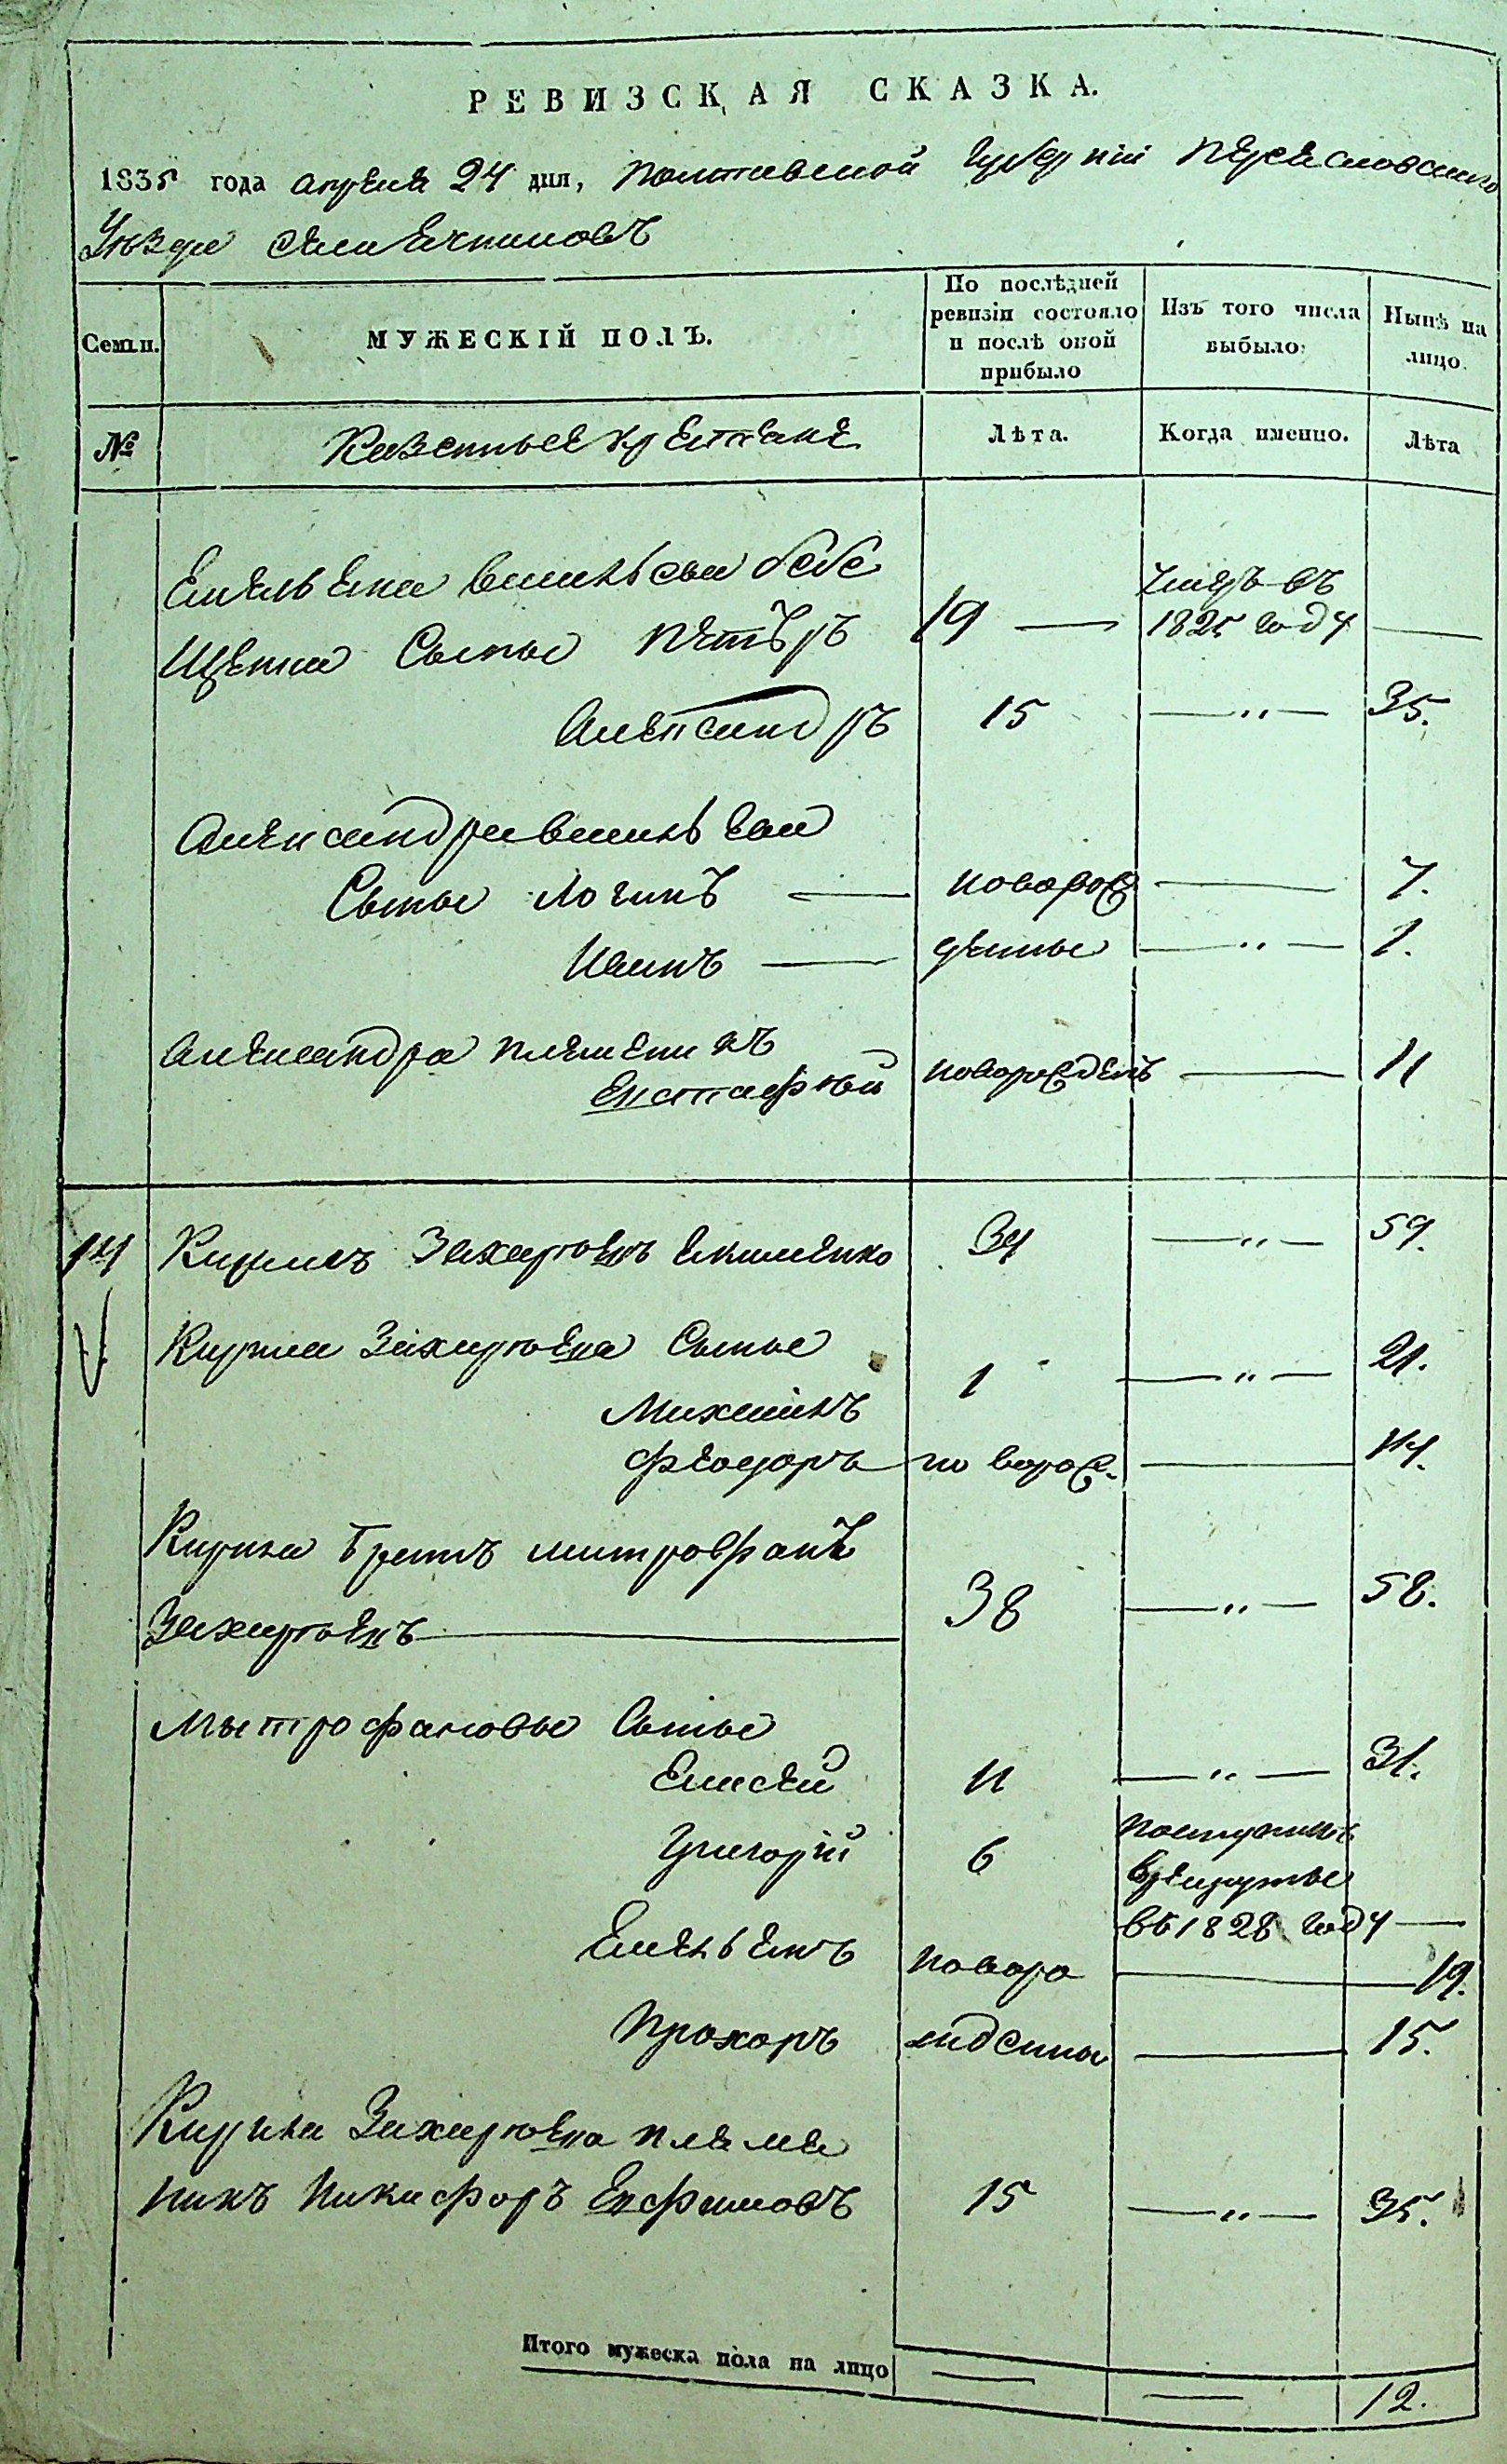 РЕВИЗСКАЯ СКАЗКА.
1835 года апреля 24 дня, Полтавской Губернiи Переяславскаго
Уезда села
Семьи.
МУЖЕСКIЙ ПОЛЪ.
По послѣдней
ревизiи состояло
и послѣ оной
прибыло
Изъ того числа
выбыло:
Нынѣ на
лицо.
№
Казенные крестяне
Лѣта.
Когда именно.
Лѣта
Емельяна
сыны Петръ 19 — умеръ въ
1825 году —
Александръ 15 — „ — 35.
Александра
Сыны Логинъ — новорож — 7.
Иванъ — дены — „ — 1.
Александра племеникъ
Евстафiй новорожденъ — 11
14 Кирилъ Захарiевъ Якименко 34 — „ — 59.
Кирила Захарiева Сыны
Михаилъ 1 — „ — 21.
Феодоръ — новорож. — 14.
Кирила братъ митрофанъ
Захарiевъ — 38 — „ — 58.
Мытрофановы Сыны
Елисей 11 — „ — 31.
Григорiй 6 поступилъ
в рекруты
въ 1828 году —
Емельянъ новоро — 19.
Прохоръ жденны — 15.
Кирила Захарiева племя
никъ Никифоръ Ефимовъ 15 — „ — 35.
Итого мужеска пола на лицо — — 12.